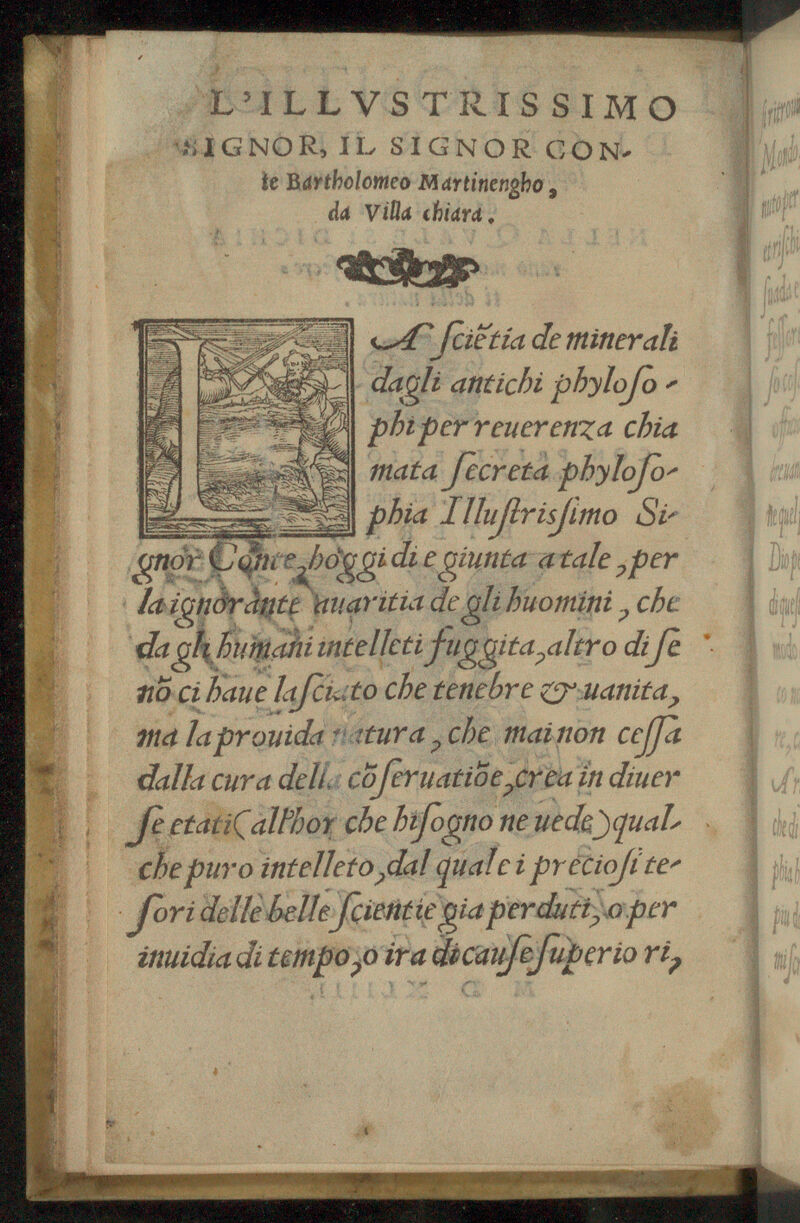 L'ILLVSTRISSIMO
SIGNOR, IL SIGNOR CON-
te Bartholomeo Martinengho,
da Villa chiara.
LA sciẽtia de minerali
dagli antichi phyloso-
phi per reuerenza chia
mata secreta phyloso-
phia Illustrissimo Si-
gnor Conte, hoggi di e giunta a tale, per
la ignorante auaritia de gli huomini, che
da gli humani intelleti fuggita, altro di se
nõ ci haue lasciato che tenebre & uanita,
ma la prouida natura, che mai non cessa
dalla cura della cõseruatiõe, crea in diuer
se etati (allhor che bisogno ne uede) qual-
che puro intelleto, dal quale i preciosi te-
sori delle belle scientie gia perduti, o per
inuidia di tempo, o ira di cause superiori,